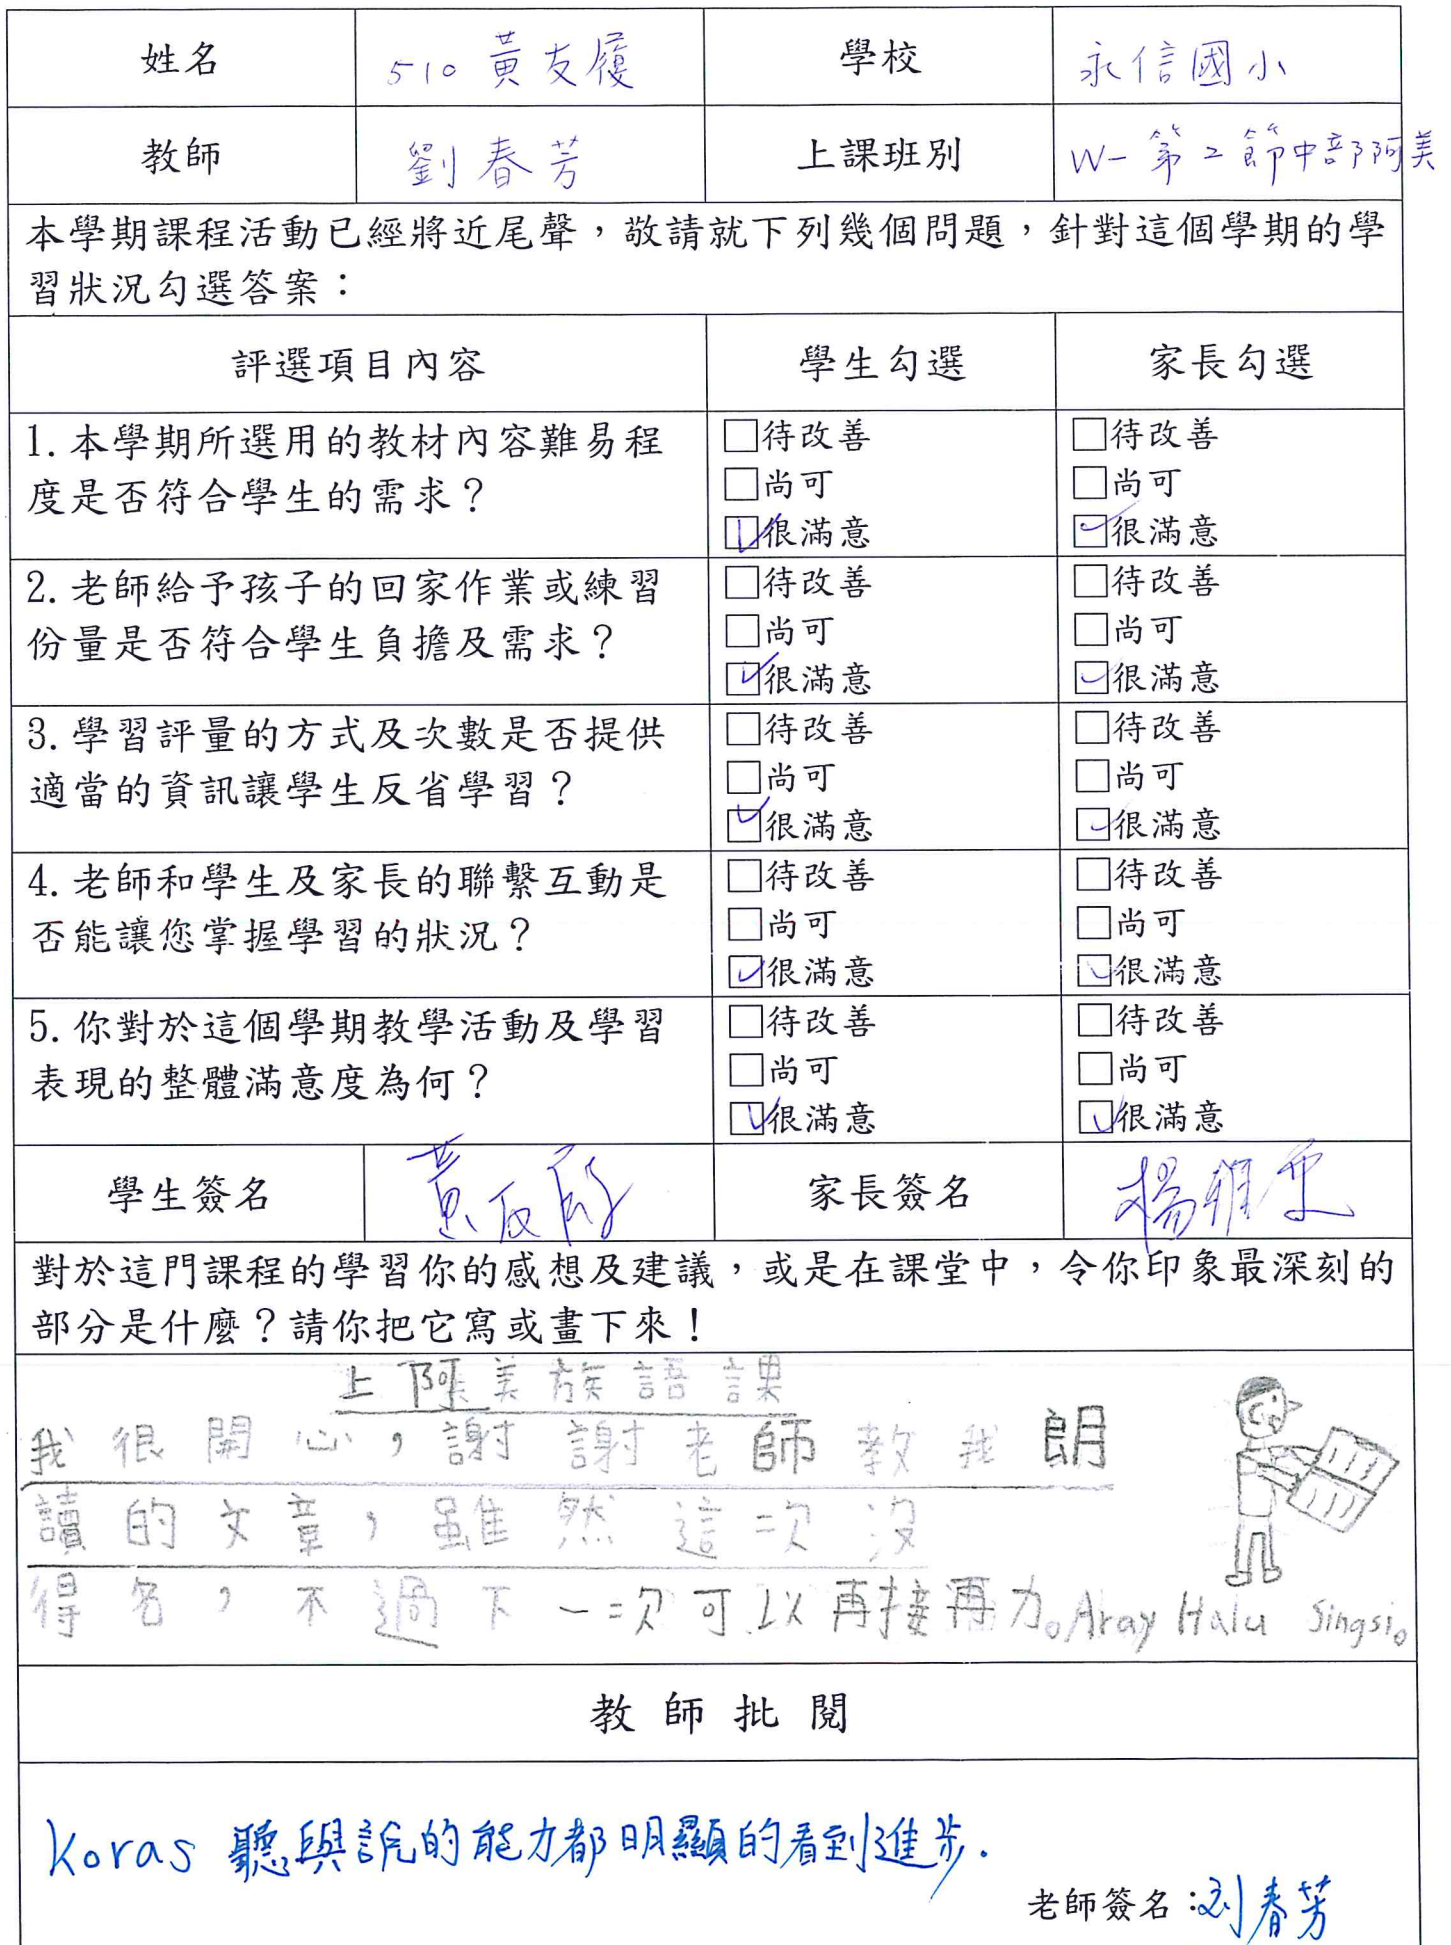 姓名 510 黃友履 學校 永信國小
教師 劉春芳 上課班別 W-第2節中部阿美
本學期課程活動已經將近尾聲，敬請就下列幾個問題，針對這個學期的學
習狀況勾選答案：
評選項目內容 學生勾選 家長勾選
1.本學期所選用的教材內容難易程
度是否符合學生的需求？
□待改善
□尚可
☑很滿意
□待改善
□尚可
☑很滿意
2.老師給予孩子的回家作業或練習
份量是否符合學生負擔及需求？
□待改善
□尚可
☑很滿意
□待改善
□尚可
☑很滿意
3.學習評量的方式及次數是否提供
適當的資訊讓學生反省學習？
□待改善
□尚可
☑很滿意
□待改善
□尚可
☑很滿意
4.老師和學生及家長的聯繫互動是
否能讓您掌握學習的狀況？
□待改善
□尚可
☑很滿意
□待改善
□尚可
☑很滿意
5.你對於這個學期教學活動及學習
表現的整體滿意度為何？
□待改善
□尚可
☑很滿意
□待改善
□尚可
☑很滿意
學生簽名 黃友 家長簽名 楊
對於這門課程的學習你的感想及建議，或是在課堂中，令你印象最深刻的
部分是什麼？請你把它寫或畫下來！
上阿美族語課
我很開心，謝謝老師教我朗
讀的文章，雖然這次沒
得名，不過下一次可以再接再力。Aray Halu Singsi。
教師批閱
Koras 聽與說的能力都明顯的看到進步.
老師簽名：刘春芳